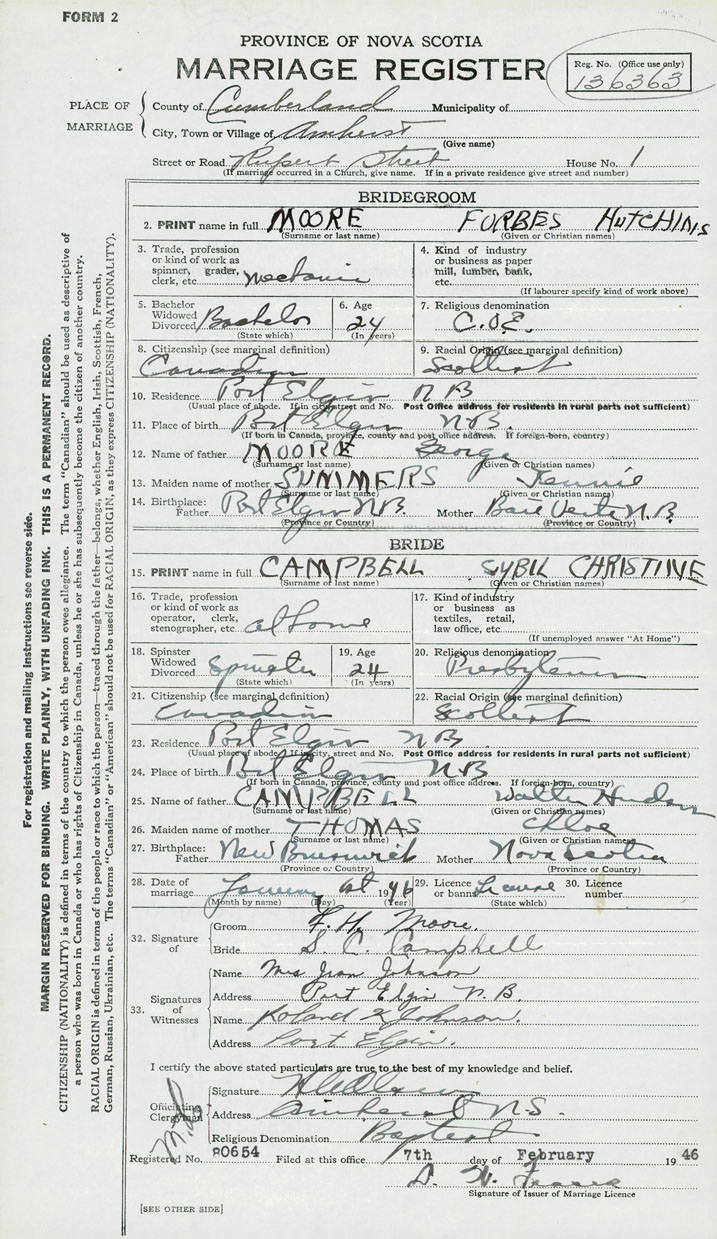 FORM 2
PROVINCE OF NOVA SCOTIA
MARRIAGE REGISTER
Reg. No. (Office use only)
136363
PLACE OF MARRIAGE
County of Cumberland Municipality of
City, Town or Village of Amherst
(Give name)
Street or Road Rupert Street House No. 1
(If marriage occurred in a Church, give name. If in a private residence give street and number)
BRIDEGROOM
2. PRINT name in full MOORE FORBES HUTCHINIS
(Surname or last name) (Given or Christian names)
3. Trade, profession or kind of work as spinner, grader, clerk, etc. Mechanic
4. Kind of industry or business as paper mill, lumber, bank, etc.
(If labourer specify kind of work above)
5. Bachelor Widowed Divorced Bachelor
(State which)
6. Age 24
(In years)
7. Religious denomination C.O.E.
8. Citizenship (see marginal definition) Canadian
9. Racial Origin (see marginal definition) Scottish
10. Residence Port Elgin N B
(Usual place of abode. If in city street and No. Post Office address for residents in rural parts not sufficient)
11. Place of birth Port Elgin N.B.
(If born in Canada, province, county and post office address. If foreign-born, country)
12. Name of father MOORE George
(Surname or last name) (Given or Christian names)
13. Maiden name of mother SUMMERS Jennie
(Surname or last name) (Given or Christian names)
14. Birthplace: Father Port Elgin N.B. Mother Baie Verte N.B.
(Province or Country) (Province or Country)
BRIDE
15. PRINT name in full CAMPBELL SYBIL CHRISTINE
(Surname or last name) (Given or Christian names)
16. Trade, profession or kind of work as operator, clerk, stenographer, etc. at home
17. Kind of industry or business as textiles, retail, law office, etc.
(If unemployed answer "At Home")
18. Spinster Widowed Divorced Spinster
(State which)
19. Age 24
(In years)
20. Religious denomination Presbyterian
21. Citizenship (see marginal definition) Canadian
22. Racial Origin (see marginal definition) Scottish
23. Residence Port Elgin N B
(Usual place of abode. If in city, street and No. Post Office address for residents in rural parts not sufficient)
24. Place of birth Port Elgin N B
(If born in Canada, province, county and post office address. If foreign-born, country)
25. Name of father CAMPBELL Walter Hudson
(Surname or last name) (Given or Christian names)
26. Maiden name of mother THOMAS Chloe
(Surname or last name) (Given or Christian names)
27. Birthplace: Father New Brunswick Mother Nova Scotia
(Province or Country) (Province or Country)
28. Date of marriage January 1st 1946
(Month by name) (Day) (Year)
29. Licence or banns License
(State which)
30. Licence number
32. Signature of
Groom F. H. Moore
Bride S. C. Campbell
33. Signatures of Witnesses
Name Mrs Jean Johnson
Address Port Elgin N. B.
Name Roland Johnson.
Address Port Elgin.
I certify the above stated particulars are true to the best of my knowledge and belief.
Officiating Clergyman
Signature
Address Amherst N.S.
Religious Denomination Baptist
Registered No. 80654 Filed at this office 7th day of February 1946
Signature of Issuer of Marriage Licence
[SEE OTHER SIDE]
For registration and mailing instructions see reverse side.
MARGIN RESERVED FOR BINDING. WRITE PLAINLY, WITH UNFADING INK. THIS IS A PERMANENT RECORD.
CITIZENSHIP (NATIONALITY) is defined in terms of the country to which the person owes allegiance. The term "Canadian" should be used as descriptive of
a person who was born in Canada or who has rights of Citizenship in Canada, unless he or she has subsequently become the citizen of another country.
RACIAL ORIGIN is defined in terms of the people or race to which the person—traced through the father—belongs, whether English, Irish, Scottish, French,
German, Russian, Ukrainian, etc. The terms "Canadian" or "American" should not be used for RACIAL ORIGIN, as they express CITIZENSHIP (NATIONALITY).